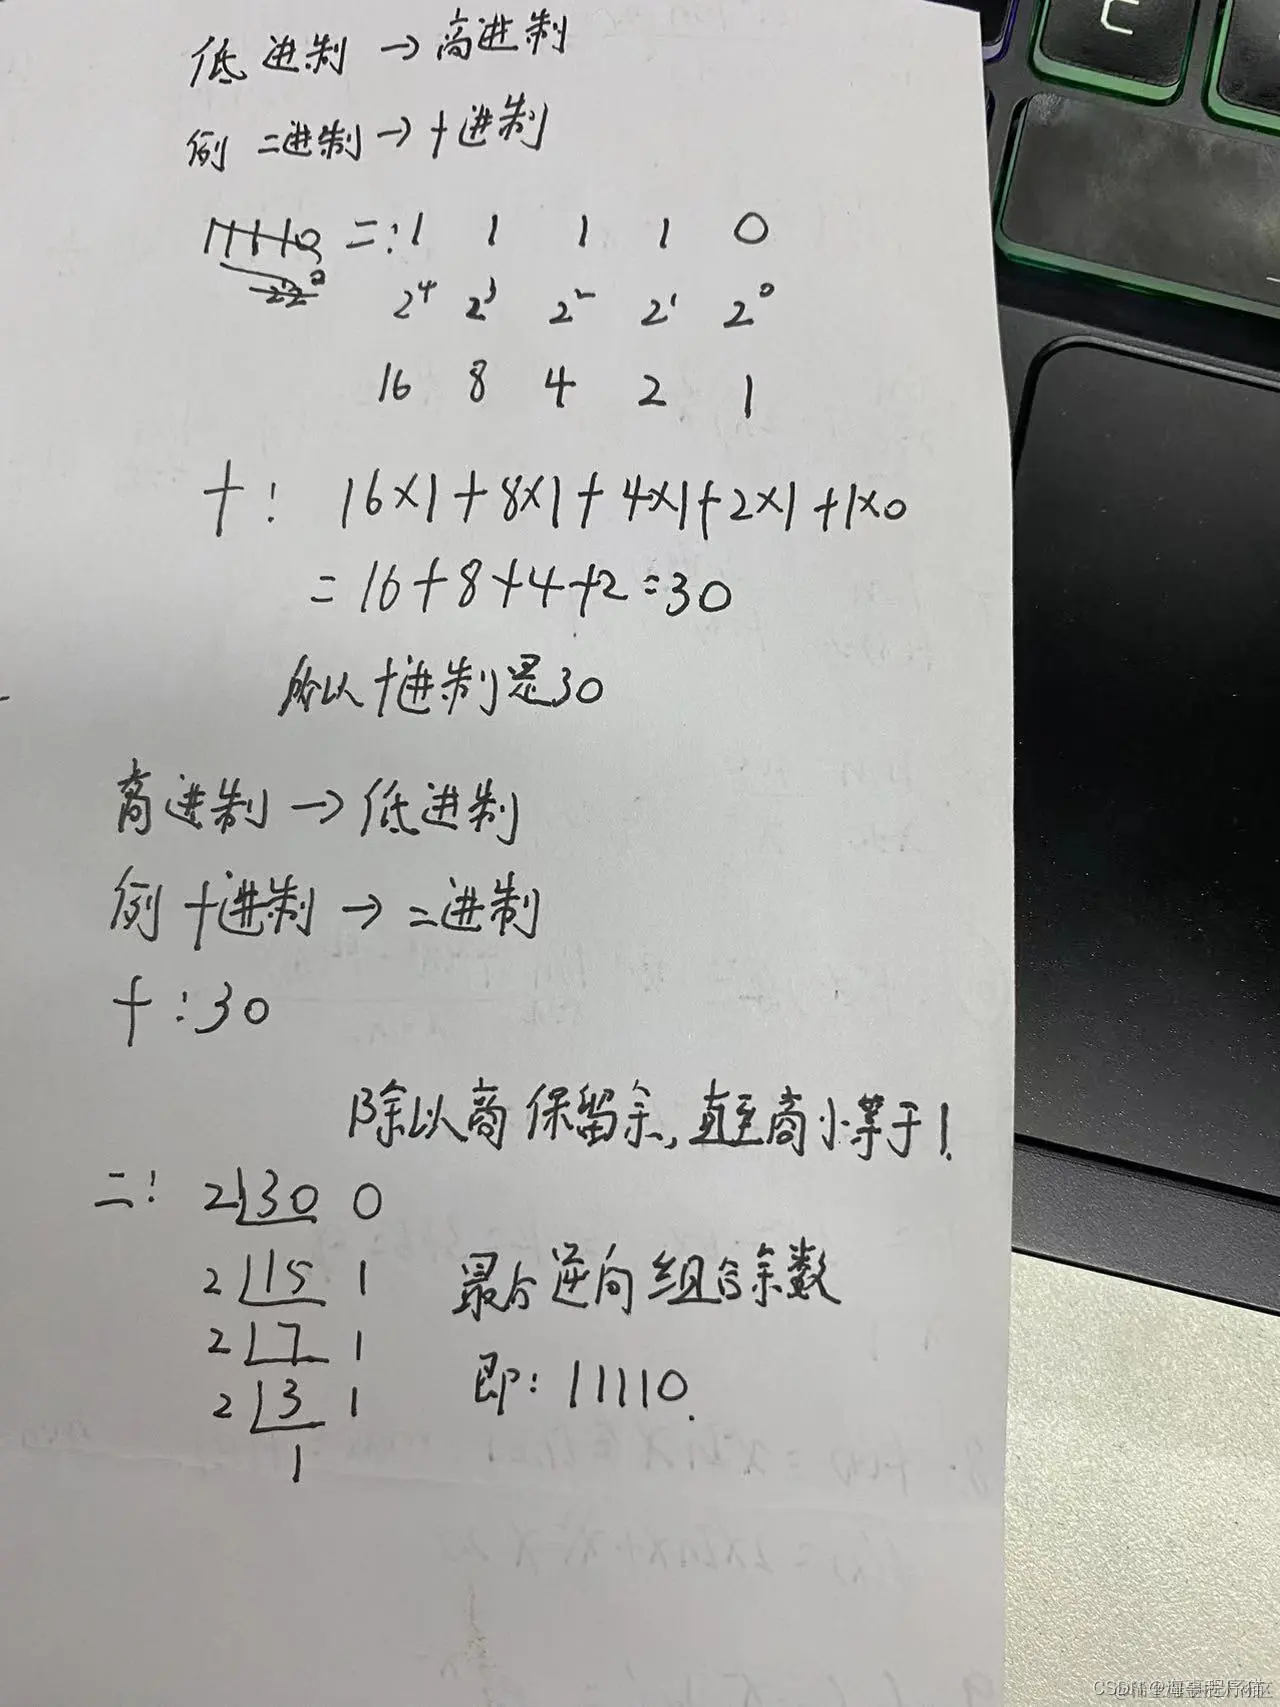 低进制 → 高进制
例 二进制 → 十进制
二: 1 1 1 1 0
2⁴ 2³ 2² 2¹ 2⁰
16 8 4 2 1
十: 16×1+8×1+4×1+2×1+1×0
=16+8+4+2=30
所以十进制是30
高进制 → 低进制
例 十进制 → 二进制
十:30
除以商保留余,直至商小等于1.
二: 2 30 0
2 15 1
最后逆向组合余数
2 7 1
即: 11110.
2 3 1
1
C